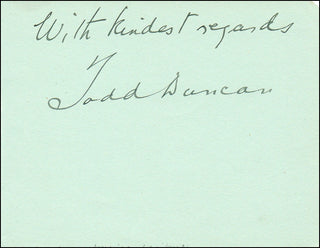 With kindest regards
Todd Duncan